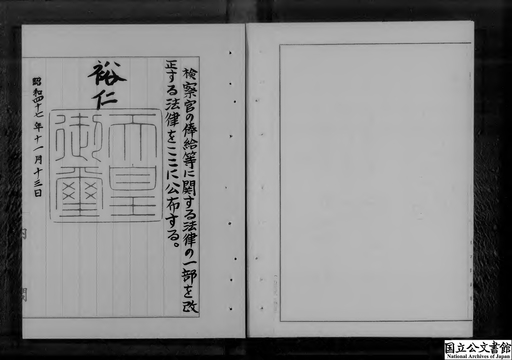 検察官の俸給等に関する法律の一部を改
正する法律をここに公布する。
裕仁
天皇
御璽
昭和四十七年十一月十三日
内閣
国立公文書館
National Archives of Japan